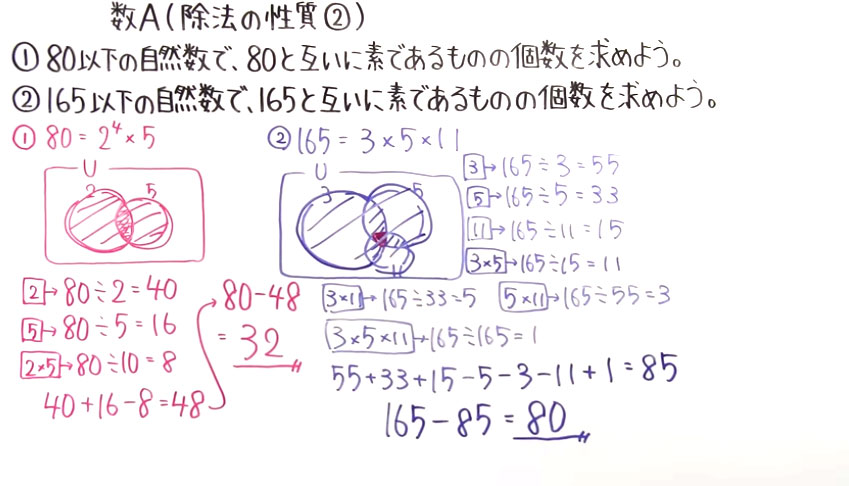 数A(除法の性質②)
①80以下の自然数で、80と互いに素であるものの個数を求めよう。
②165以下の自然数で、165と互いに素であるものの個数を求めよう。
①80=2⁴×5
U
2 5
2→80÷2=40
5→80÷5=16
2×5→80÷10=8
40+16-8=48
80-48
=32
②165=3×5×11
U
3 5
11
3→165÷3=55
5→165÷5=33
11→165÷11=15
3×5→165÷15=11
3×11→165÷33=5 5×11→165÷55=3
3×5×11→165÷165=1
55+33+15-5-3-11+1=85
165-85=80